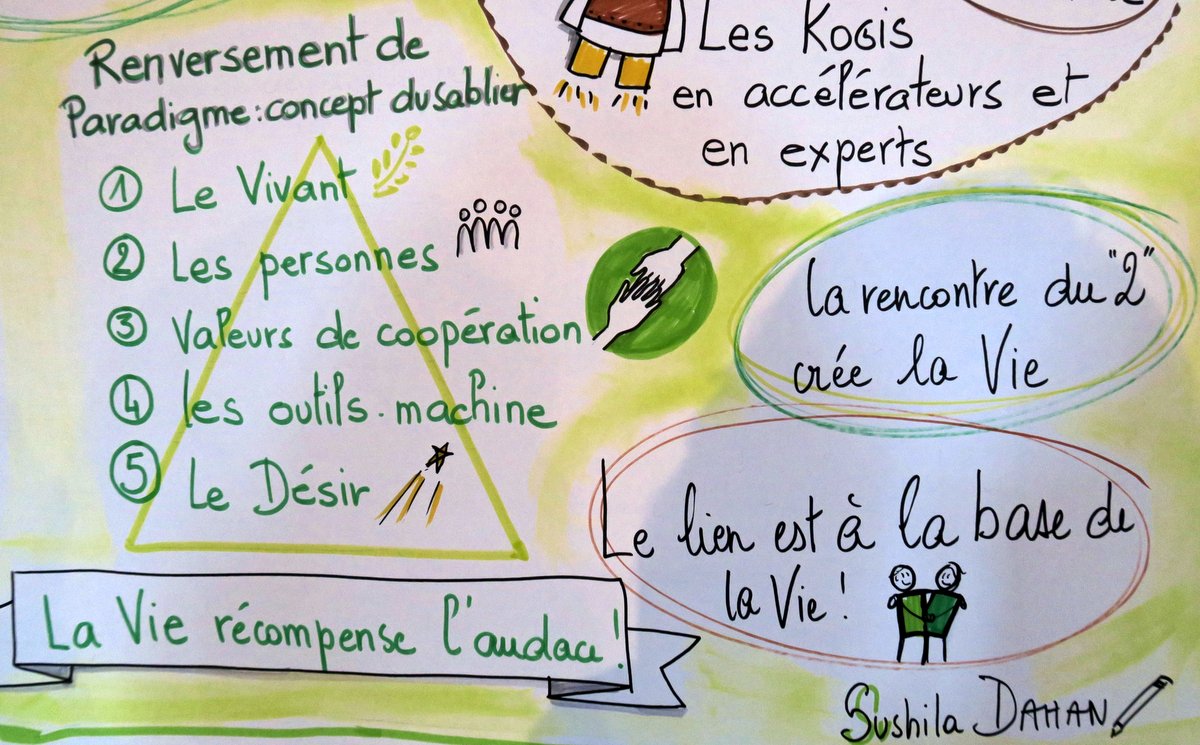 Renversement de
Paradigme : concept du sablier
① Le Vivant
② Les personnes
③ Valeurs de coopération
④ les outils. machine
⑤ Le Désir
La Vie récompense l'audace !
Les Kogis
en accélérateurs et
en experts
la rencontre du "2"
crée la Vie
Le lien est à la base de
la Vie !
Sushila DAHAN